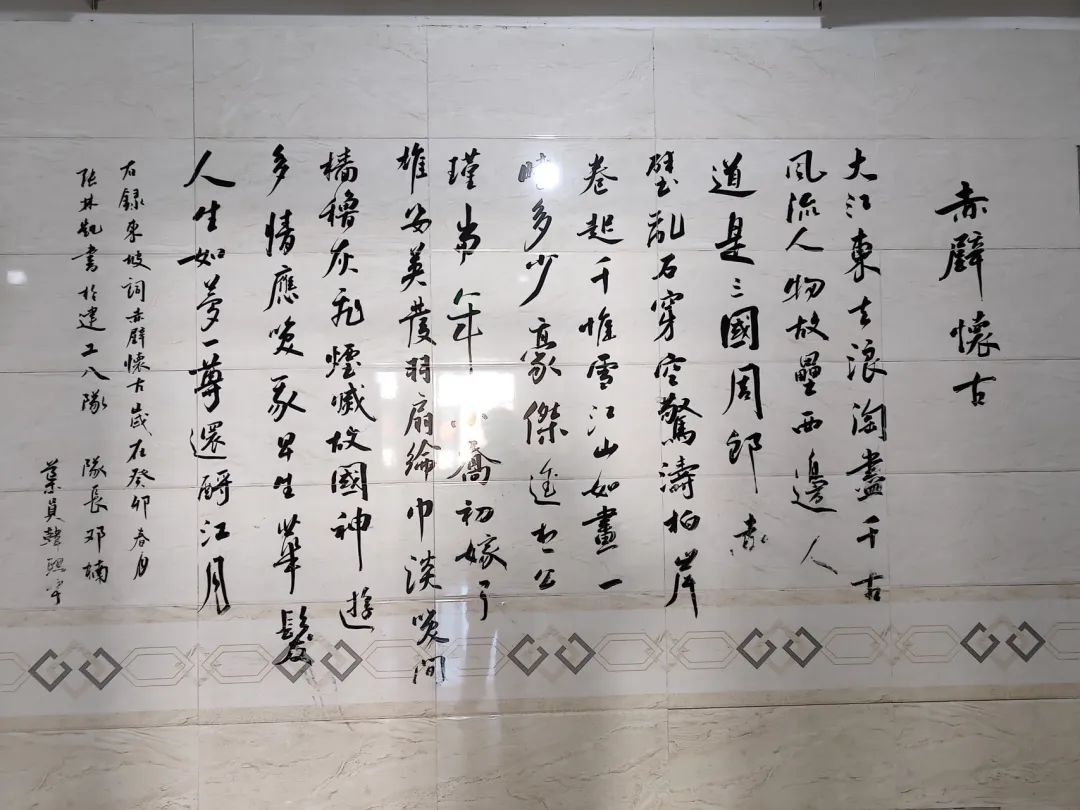 赤壁懷古
大江東去浪淘盡千古
風流人物故壘西邊人
道是三國周郎赤
壁亂石穿空驚濤拍岸
卷起千堆雪江山如畫一
時多少豪傑遙想公
瑾當年小喬初嫁了
雄姿英發羽扇綸巾談笑間
檣櫓灰飛煙滅故國神遊
多情應笑我早生華髮
人生如夢一尊還酹江月
右録東坡詞赤壁懷古歲在癸卯春月
張林凱書於建工八隊 隊長邓楠
員韓熙